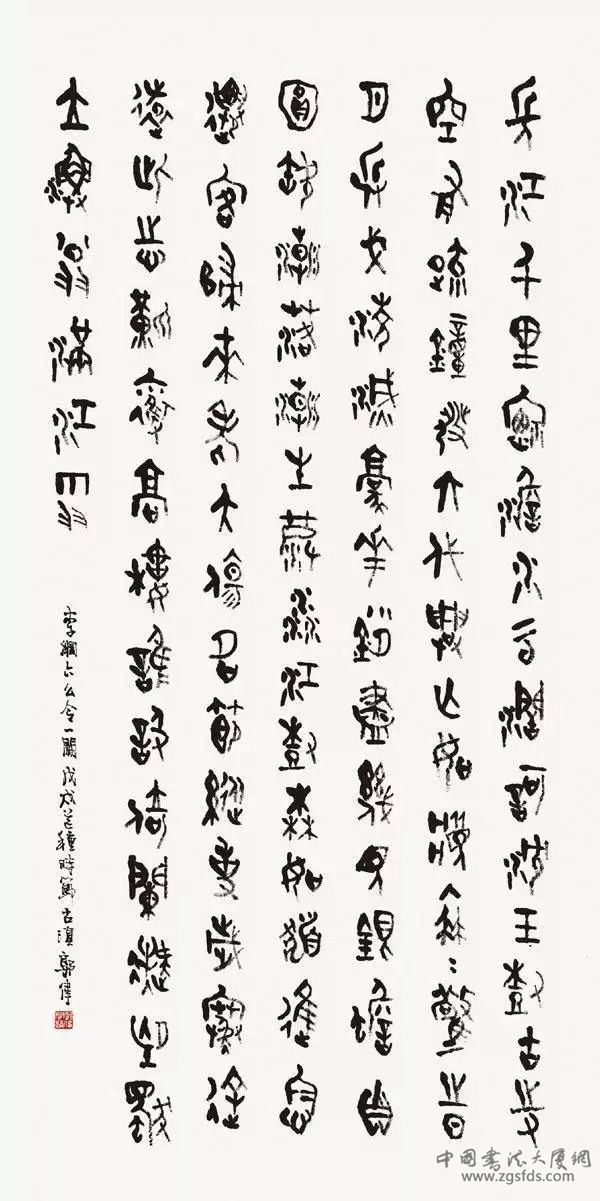 長江千里烟澹水雲闊歌沈玉樹古寺
空有疏鐘發六代興亡如夢苒〻驚時
月兵戈淩滅豪華銷盡幾見銀蟾自
圓缺潮落潮生波渺江樹森如髮誰念
遷客歸來老大傷名節縱使歲寒途
遠此志應難奪高樓誰設倚闌凝望獨
立漁翁滿江雪
李綱六么令一闋戊戌芒種時郭偉
中国书法大厦網
www.zgsfds.com